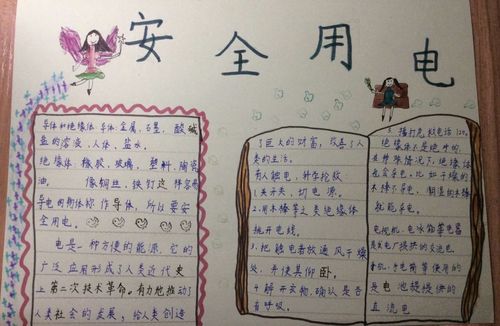 安全用电
导体和绝缘体 导体:金属,石墨,酸碱
盐的溶液,人体,盐水。
绝缘体:橡胶,玻璃,塑料,陶瓷
油。 像铜丝,铁钉这样容易
导电的物体称作导体,所以要安
全用电。
电是一种方便的能源,它的
广泛应用形成了人类近代史
上第二次技术革命。有力地推动了
人类社会的发展,给人类创造
了巨大的财富,改善了人
类的生活。
有人触电,科学抢救。
1.关开关,切电源。
2.用木棒等之类绝缘体
挑开电线。
3.把触电者放通风干燥
处,并使其仰卧。
4.解开衣物,确认是否
有呼吸。
5.拨打急救电话120。
绝缘体不是绝对的,
在特殊情况下,绝缘体
也会导电,比如干燥的
木棒不导电,潮湿的木棒
就能导电。
电视机、电冰箱等电器
是发电厂提供的交流电,
手机、手电筒等使用的
是电池提供的
直流电